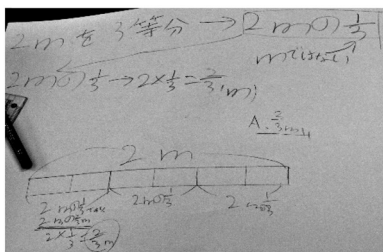 2mを3等分→2mの1/3
mではない
2mの1/3→2×1/3=2/3(m)
A. 2/3m
2m
2mの1/3 2mの1/3 2mの1/3
2×1/3=2/3m